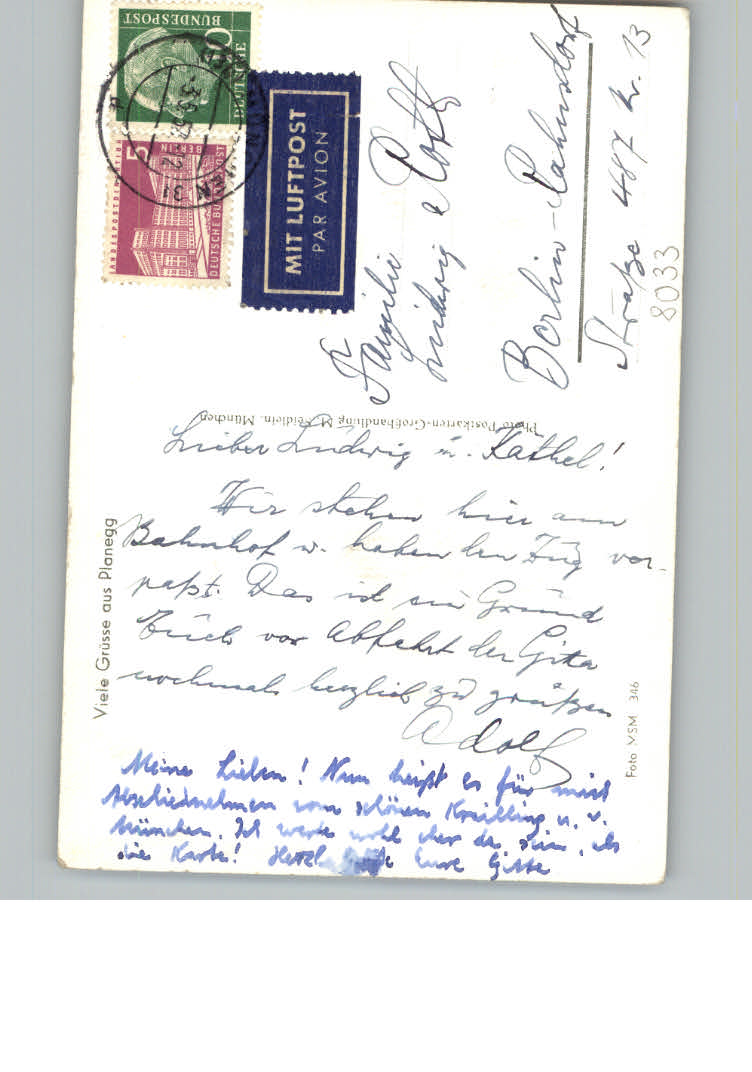 DEUTSCHE
BUNDESPOST
10
5
DEUTSCHE BUNDESPOST
BERLIN
LANDESPOSTDIREKTION
31
MIT LUFTPOST
PAR AVION
Familie
Ludwig
Berlin-Rahnsdorf
Straße 487 Nr. 13
8033
Photo Postkarten-Großhandlung M. Seidlein, München
Viele Grüsse aus Planegg
Foto MSM 346
Lieber Ludwig u. Käthel!
Wir stehen hier am
Bahnhof u. haben den Zug ver-
paßt. Das ist ein Grund
Euch vor Abfahrt der Gitta
nochmals herzlich zu grüßen
Adolf
Meine Lieben! Nun heißt es für mich
Abschiednehmen vom schönen Krailling u. v.
München. Ich werde wohl eher da sein, als
die Karte! Eure Gitta